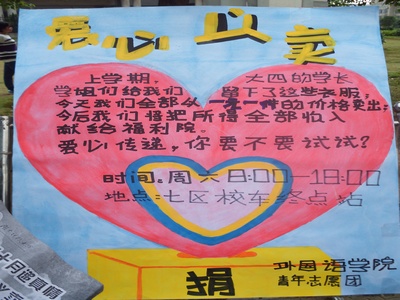 爱心义卖
上学期， 大四的学长
学姐们给我们 留下了这些衣服，
今天我们全部以一元一件的价格卖出，
今后我们将把所得全部收入
献给福利院。
爱心传递，你要不要试试？
时间。周六8:00—18:00
地点:七区校车终点站
捐
外国语学院
青年志愿团
十月遊貝嗎